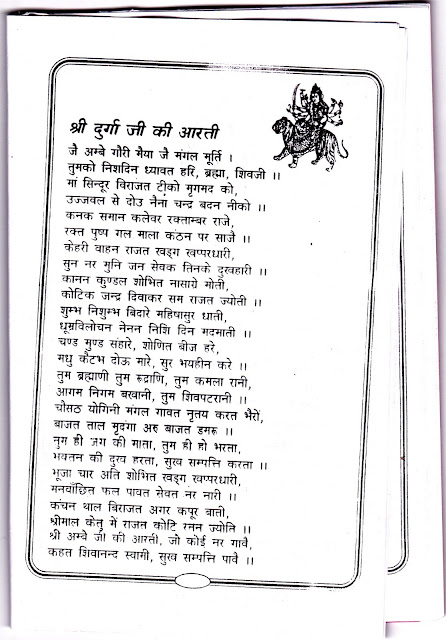 श्री दुर्गा जी की आरती
जै अम्बे गौरी मैया जै मंगल मूर्ति ।
तुमको निशदिन ध्यावत हरि, ब्रह्मा, शिवजी ।।
मां सिन्दूर विराजत टीको मृगमद को,
उज्जवल से दोउ नैना चन्द्र बदन नीको ।।
कनक समान कलेवर रक्ताम्बर राजे,
रक्त पुष्प गल माला कंठन पर साजै ।।
केहरी वाहन राजत खड्ग खप्परधारी,
सुन नर मुनि जन सेवक तिनके दुखहारी ।।
कानन कुण्डल शोभित नासाग्रे मोती,
कोटिक जन्द्र दिवाकर सम राजत ज्योती ।।
शुम्भ निशुम्भ बिदारे महिषासुर धाती,
धूम्रविलोचन नेनन निशि दिन मदमाती ।।
चण्ड मुण्ड संहारे, शोणित बीज हरे,
मधु कैटभ दोऊ मारे, सुर भयहीन करे ।।
तुम ब्रह्माणी तुम रूद्राणि, तुम कमला रानी,
आगम निगम बखानी, तुम शिवपटरानी ।।
चौसठ योगिनी मंगल गावत नृतय करत भैरों,
बाजत ताल मृदंगा अरु बाजत डमरू ।।
तुम ही जग की माता, तुम ही हो भरता,
भक्तन की दुख हरता, सुख सम्पत्ति करता ।।
भूजा चार अति शोभित खड्ग खप्परधारी,
मनवाँछित फल पावत सेवत नर नारी ।।
कंचन थाल बिराजत अगर कपूर बाती,
श्रीमाल केतु में राजत कोटि रनन ज्योति ।।
श्री अम्बे जी की आरती, जो कोई नर गावै,
कहत शिवानन्द स्वामी, सुख सम्पत्ति पावै ।।